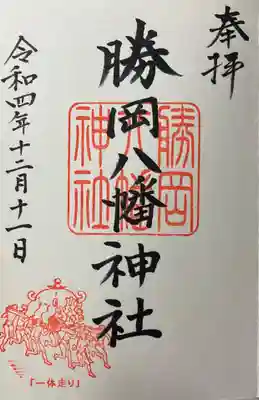 奉拝
勝岡八幡神社
勝岡
八幡
神社
令和四年十二月十一日
「一体走り」